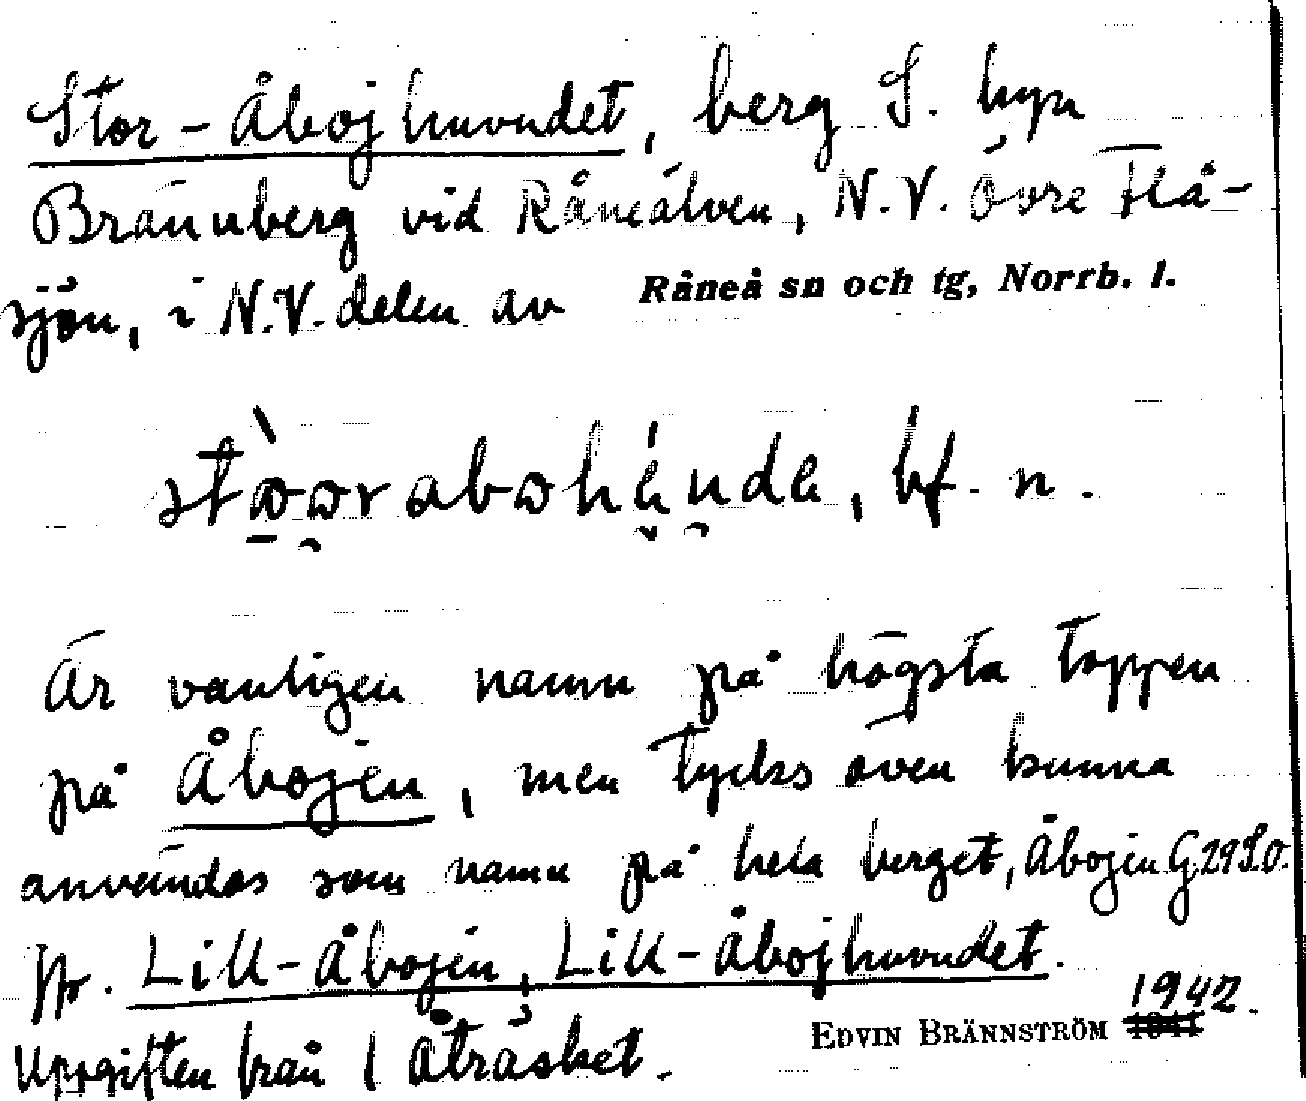 Stor-Åbojhuvudet, berg S. byn
Brännberg vid Råneälven, N.V. Övre Flå-
sjön, i N.V. delen av Råneå sn och tg, Norrb. l.
bf. n.
Är vanligen namn på högsta toppen
på Åbojen, men tycks även kunna
användas som namn på hela berget, Åbojen G 29 S.O.
Jfr. Lill-Åbojen, Lill-Åbojhuvudet.
EDVIN BRÄNNSTRÖM 1942.
Uppgiften från Åträsket.